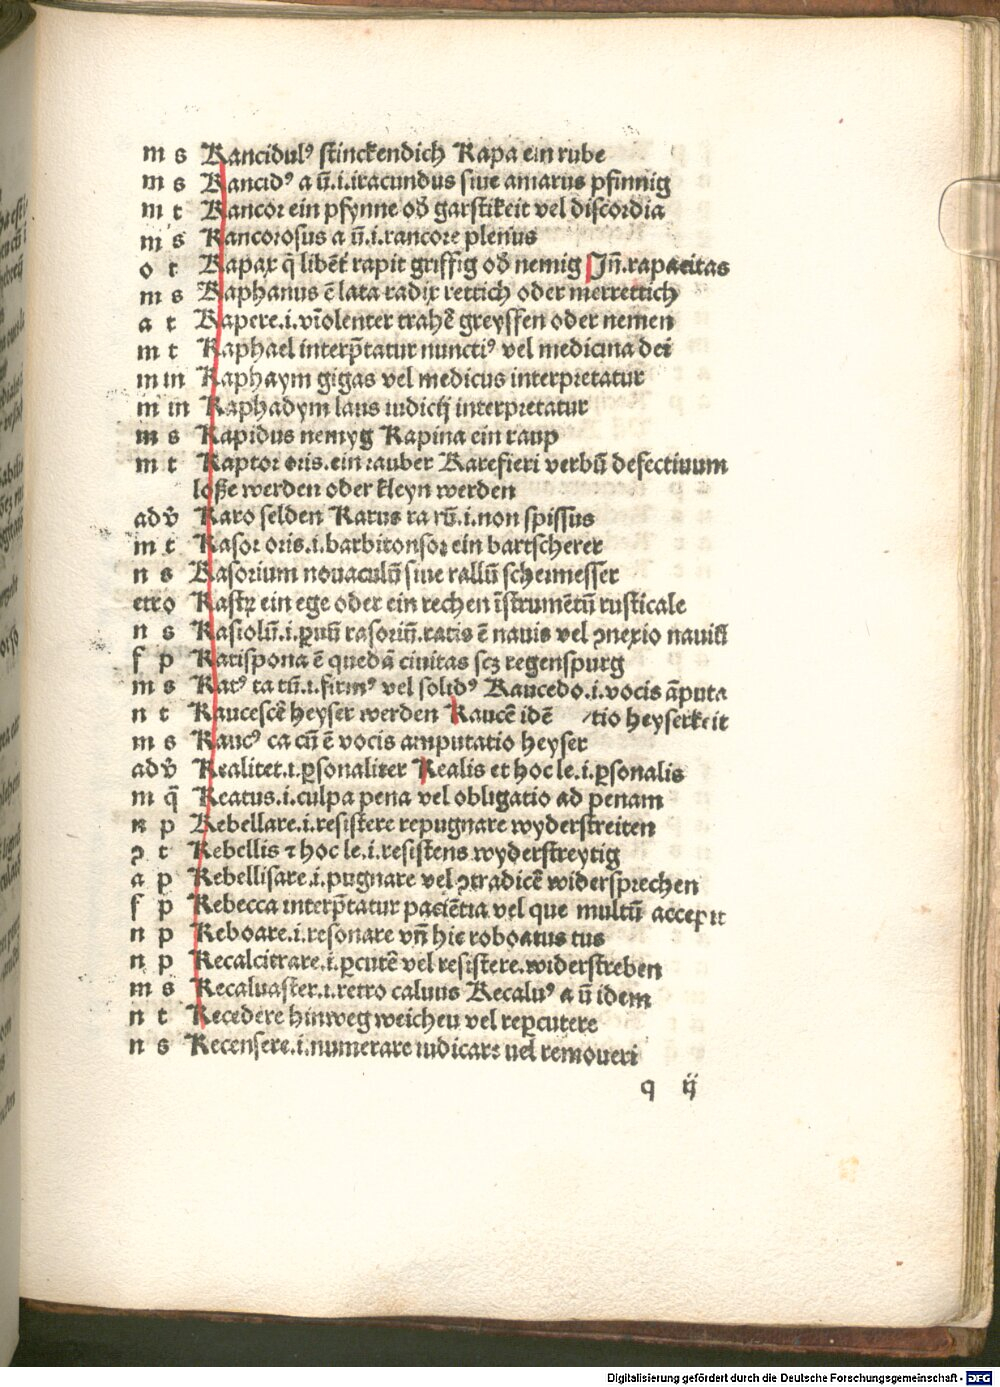 m s Rancidulꝰ stinckendich Rapa ein rube
m s Rancidꝰ a ū.i.iracundus siue amarus pfinnig
m t Rancor ein pfynne od̕ garstikeit vel discordia
m s Rancorosus a ū.i.rancore plenus
o t Rapax q̄ libēt̕ rapit griffig od̕ nemig Jn̄.rapacitas
m s Raphanus ē lata radix rettich oder merrettich
a t Rapere.i.violenter trahē greyffen oder nemen
m t Raphael interp̄tatur nunctiꝰ vel medicina dei
m in Raphaym gigas vel medicus interpretatur
m in Raphadym laus iudicij interpretatur
m s Rapidus nemyg Rapina ein raup
m t Raptor oris.ein rauber Rarefieri verbū defectiuum
loße werden oder kleyn werden
adv̄ Raro selden Rarus ra rū.i.non spissus
m t Rasor oris.i.barbitonsor ein bartscherer
n s Rasorium nouaculū siue rallū schermesser
etro Rastꝝ ein ege oder ein rechen īstrumētū rusticale
n s Rasiolū.i.ꝑuū rasoriū.ratis ē nauis vel ꝯnexio nauiū
f p Ratispona ē quedā ciuitas scꝫ regenspurg
m s Ratꝰ ta tū.i.firmꝰ vel solidꝰ Raucedo.i.vocis āputa
n t Raucescē heyser werden Raucē idē /tio heyserkeit
m s Raucꝰ ca cū ē vocis amputatio heyser
adv̄ Realitet.i.ꝑsonaliter Realis et hoc le.i.ꝑsonalis
m q̄ Reatus.i.culpa pena vel obligatio ad penam
n p Rebellare.i.resistere repugnare wyderstreiten
ꝯ t Rebellis ⁊ hoc le.i.resistens wyderstreytig
a p Rebellisare.i.pugnare vel ꝯtradicē widersprechen
f p Rebecca interp̄tatur paciētia vel que multū accepit
n p Reboare.i.resonare vn̄ hic roboatus tus
n p Recalcitrare.i.ꝑcutē vel resistere.widerstreben
m s Recaluaster.i.retro caluus Recaluꝰ a ū idem
n t Recedere hinweg weichen vel reꝑcutere
n s Recensere.i.numerare iudicare uel remoueri
q ij
Digitalisierung gefördert durch die Deutsche Forschungsgemeinschaft - DFG